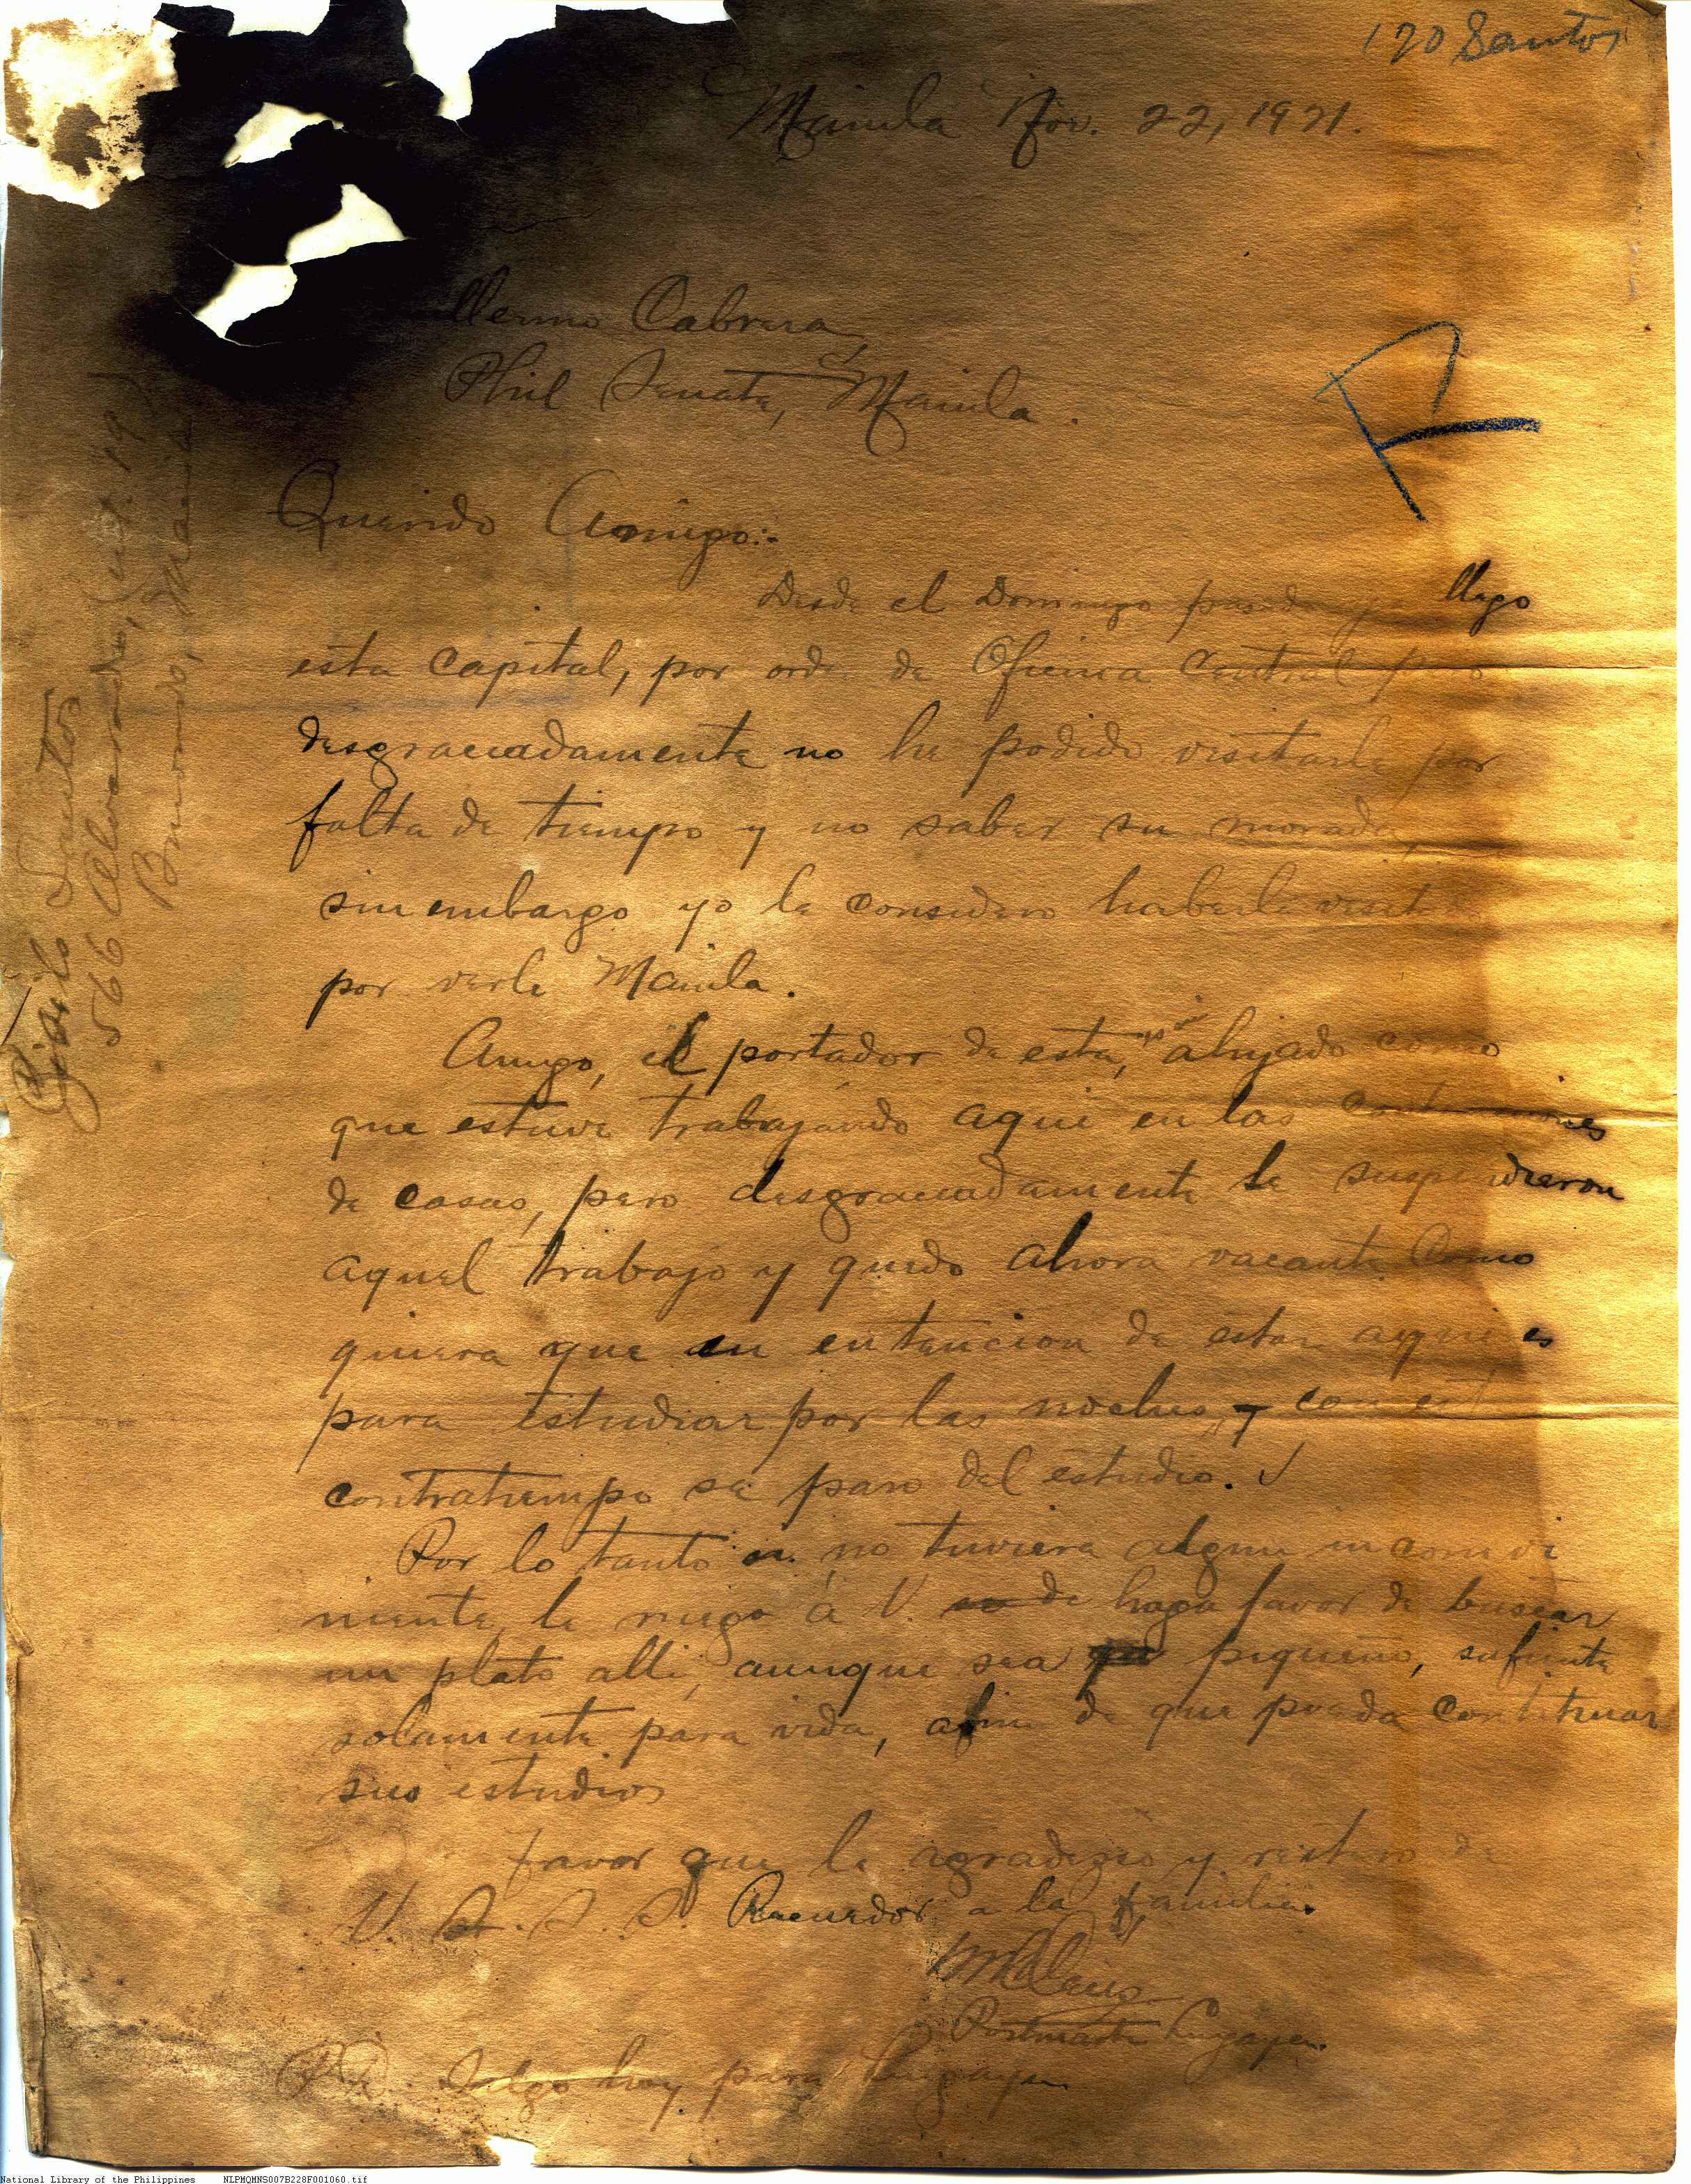 120 Santos
Manila Nov. 22, 1921.
llermo Cabrera
Phil Senate, Manila.
Querido Amigo:-
Desde el Domingo llego
esta capital, por orden de Oficina Central pero
desgraciadamente no he podido visitarle por
falta de tiempo y no saber su morada,
sin embargo yo le considero haberle
por verle Manila.
Amigo, el portador de esta, ahijado como
que estuve trabajando aqui en las
de casas, pero desgraciadamente le suspendieron
aquel trabajo y quedo ahora vacante. Como
quiera que en entencion de estar aqui es
para estudiar por las noches, y con est
contratiempo se paro del estudio.
Por lo tanto si no tuviera algun inconvi
niente, le ruego á V. de haga favor de buscar
un plato alli, aunque sea pequeño, sufiente
solamente para vida, afin de que pueda contituar
sus estudios
favor que le agradezco y reitero de
V. S. S. S. Recuerdos a la familia.
Postmaster Lingayen.
Salgo hoy para Lingayen
Santos
566 Alvarado, (int. 19)
Binondo, Manila
National Library of the Philippines NLPMQMNS007B228F001060.tif